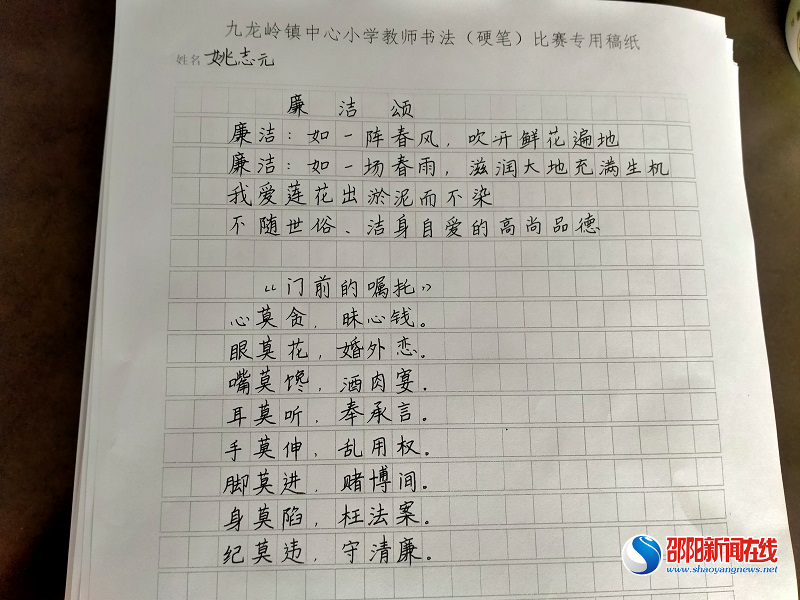 九龙岭镇中心小学教师书法（硬笔）比赛专用稿纸
姓名 姚志元
廉洁颂
廉洁：如一阵春风，吹开鲜花遍地
廉洁：如一场春雨，滋润大地充满生机
我爱莲花出淤泥而不染
不随世俗、洁身自爱的高尚品德
“门前的嘱托”
心莫贪，昧心钱。
眼莫花，婚外恋。
嘴莫馋，酒肉宴。
耳莫听，奉承言。
手莫伸，乱用权。
脚莫进，赌博间。
身莫陷，枉法案。
纪莫违，守清廉。
邵阳新闻在线
www.shaoyangnews.net